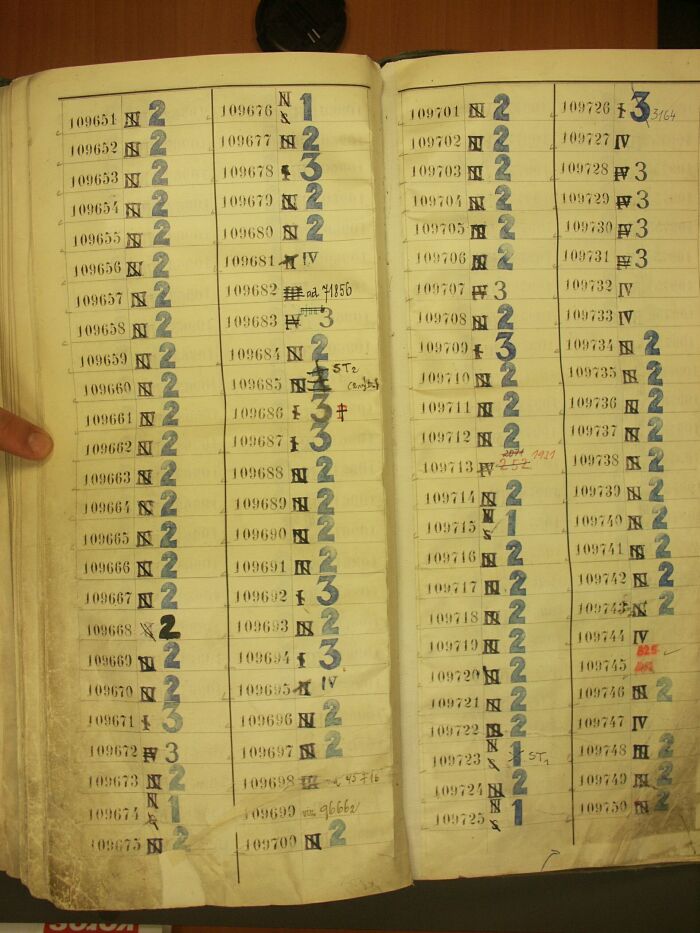 109651 N 2
109652 N 2
109653 N 2
109654 N 2
109655 N 2
109656 N 2
109657 N 2
109658 N 2
109659 N 2
109660 N 2
109661 N 2
109662 N 2
109663 N 2
109664 N 2
109665 N 2
109666 N 2
109667 N 2
109668 2
109669 N 2
109670 N 2
109671 I 3
109672 IV 3
109673 N 2
109674 N 1
109675 N 2
109676 N 1
109677 N 2
109678 I 3
109679 N 2
109680 N 2
109681 IV
109682 ad 71856
109683 IV 3
109684 N 2
109685 N ST2
109686 I 3
109687 I 3
109688 N 2
109689 N 2
109690 N 2
109691 N 2
109692 I 3
109693 N 2
109694 I 3
109695 IV
109696 N 2
109697 N 2
109698 45716
109699 96662
109700 N 2
109701 N 2
109702 N 2
109703 N 2
109704 N 2
109705 N 2
109706 N 2
109707 IV 3
109708 N 2
109709 I 3
109710 N 2
109711 N 2
109712 N 2
109713 IV 252 1921
109714 N 2
109715 N 1
109716 N 2
109717 N 2
109718 N 2
109719 N 2
109720 N 2
109721 N 2
109722 N 2
109723 N 1 ST1
109724 N 2
109725 N 1
109726 I 3 3164
109727 IV
109728 IV 3
109729 IV 3
109730 IV 3
109731 IV 3
109732 IV
109733 IV
109734 N 2
109735 N 2
109736 N 2
109737 N 2
109738 N 2
109739 N 2
109740 N 2
109741 N 2
109742 N 2
109743 N 2
109744 IV
109745 825
109746 N 2
109747 IV
109748 N 2
109749 N 2
109750 N 2